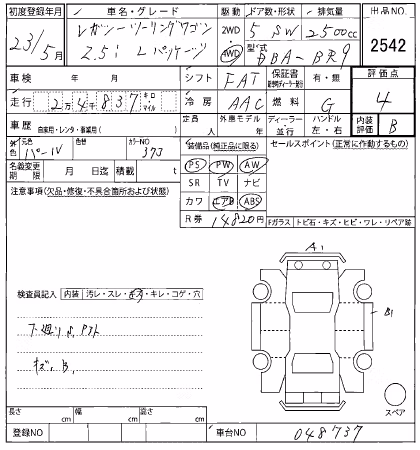 初度登録年月 車名・グレード 駆動 ドア数・形状 排気量 出品NO
23/5月 レガシーツーリングワゴン 2WD 5 SW 2500cc 2542
2.5i Lパッケージ 4WD 型式 DBA-BR9
車検 年 月 シフト FAT 保証書 有・無 評価点
走行 2万4千837 キロ マイル 冷房 AAC 燃料 G 4
車歴 自家用・レンタ・事業用( ) 定員 人 外車モデル 年 ディーラー 並行 ハンドル 左・右 内装評価 B
外色 元色 パール 色替 カラーNO 37J 装備品(純正品に限る) セールスポイント(正常に作動するもの)
名義変更期限 月 日迄 積載 t PS PW AW
注意事項(欠品・修復・不具合箇所および状態) SR TV ナビ
カワ エアB ABS
R券 14820円
Fガラス トビ石・キズ・ヒビ・ワレ・リペア跡
A1
検査員記入 内装 汚レ・スレ・キズ・キレ・コゲ・穴
B1
キズ, B,
スペア
長さ cm 幅 cm 高さ cm
登録NO 車台NO 048737